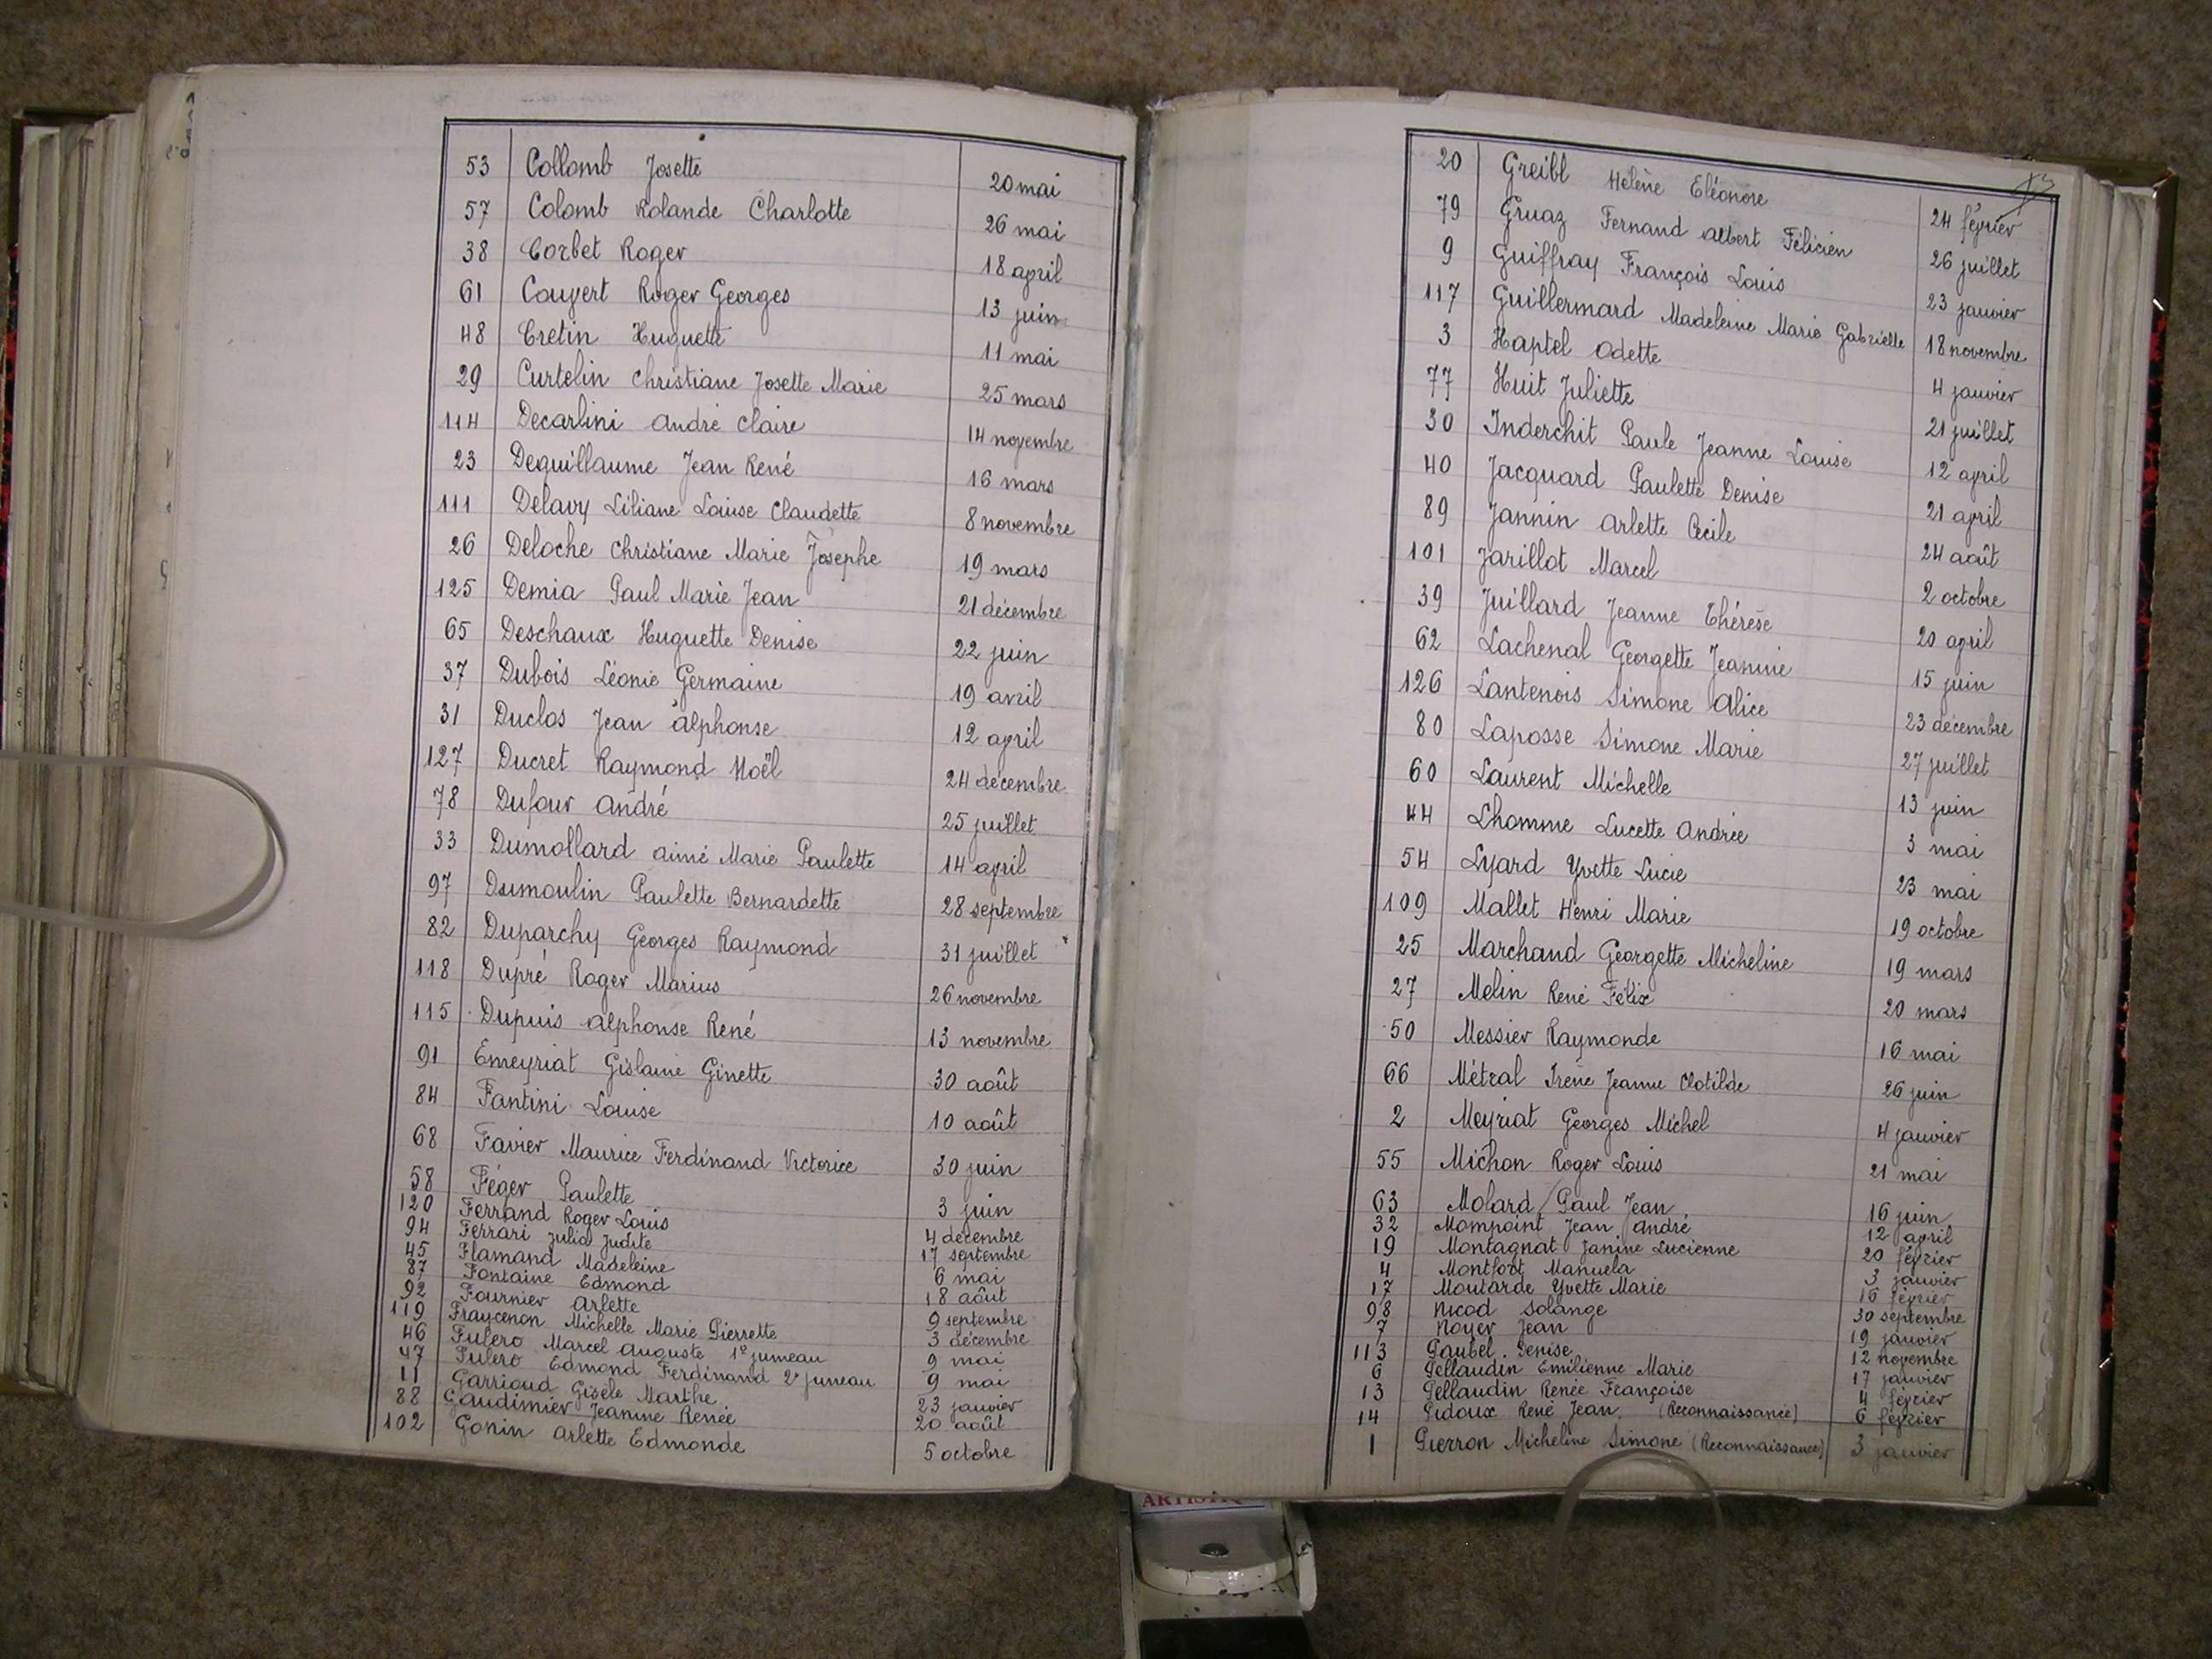 53 Collomb Josette 20 mai
57 Colomb Rolande Charlotte 26 mai
38 Corbet Roger 18 april
61 Couvert Roger Georges 13 juin
48 Cretin Huguette 11 mai
29 Curtelin Christiane Josette Marie 25 mars
114 Decarlini André Claire 14 novembre
23 Deguillaume Jean René 16 mars
111 Delavy Liliane Louise Claudette 8 novembre
26 Deloche Christiane Marie Josephe 19 mars
125 Demia Paul Marie Jean 21 décembre
65 Deschaux Huguette Denise 22 juin
37 Dubois Léonie Germaine 19 avril
31 Duclos Jean Alphonse 12 april
127 Ducret Raymond Noël 24 décembre
78 Dufour André 25 juillet
33 Dumollard Aimé Marie Paulette 14 april
97 Dumoulin Paulette Bernardette 28 septembre
82 Duparchy Georges Raymond 31 juillet
118 Dupré Roger Marius 26 novembre
115 Dupuis Alphonse René 13 novembre
91 Emeyriat Gislaine Ginette 30 août
84 Fantini Louise 10 août
68 Favier Maurice Ferdinand Victorice 30 juin
58 Féger Paulette 3 juin
120 Ferrand Roger Louis 4 décembre
94 Ferrari Julia Judite 17 septembre
45 Flamand Madeleine 6 mai
87 Fontaine Edmond 18 août
92 Fournier Arlette 9 septembre
119 Fraycenon Michelle Marie Pierrette 3 décembre
46 Fulero Marcel Auguste 1º jumeau 9 mai
47 Fulero Edmond Ferdinand 2º jumeau 9 mai
11 Garrioud Gisèle Marthe 23 janvier
88 Gaudimier Jeanine Renée 20 août
102 Gonin Arlette Edmonde 5 octobre
13
20 Greibl Hélène Eléonore 24 février
79 Gruaz Fernand Albert Félicien 26 juillet
9 Guiffray François Louis 23 janvier
117 Guillermard Madeleine Marie Gabrielle 18 novembre
3 Haptel Odette 4 janvier
77 Huit Juliette 21 juillet
30 Inderchit Paule Jeanne Louise 12 april
40 Jacquard Paulette Denise 21 april
89 Jannin Arlette Cécile 24 août
101 Jarillot Marcel 2 octobre
39 Juillard Jeanne Thérèse 20 april
62 Lachenal Georgette Jeannie 15 juin
126 Lantenois Simone Alice 23 décembre
80 Laposse Simone Marie 27 juillet
60 Laurent Michelle 13 juin
44 Lhomme Lucette Andrée 3 mai
54 Lyard Yvette Lucie 23 mai
109 Mallet Henri Marie 19 octobre
25 Marchand Georgette Micheline 19 mars
27 Melin René Félix 20 mars
50 Messier Raymonde 16 mai
66 Métral Irène Jeanne Clotilde 26 juin
2 Meyriat Georges Michel 4 janvier
55 Michon Roger Louis 21 mai
63 Molard Paul Jean 16 juin
32 Mompoint Jean André 12 april
19 Montagnat Janine Lucienne 20 février
4 Montfort Manuela 3 janvier
17 Moutarde Yvette Marie 16 février
98 Nicod Solange 30 septembre
7 Noyer Jean 19 janvier
113 Paubel Denise 12 novembre
6 Pellaudin Emilienne Marie 17 janvier
13 Pellaudin Renée Françoise 4 février
14 Pidoux René Jean (Reconnaissance) 6 février
1 Pierron Micheline Simone (Reconnaissance) 3 janvier